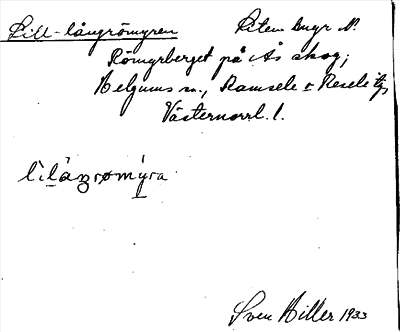 Lill-långrömyren Liten myr N.
Römyrberget på Ås skog;
Helgums sn., Ramsele o Resele tg,
Västernorrl. l.
lìlåŋrømýra
Sven Hiller 1933